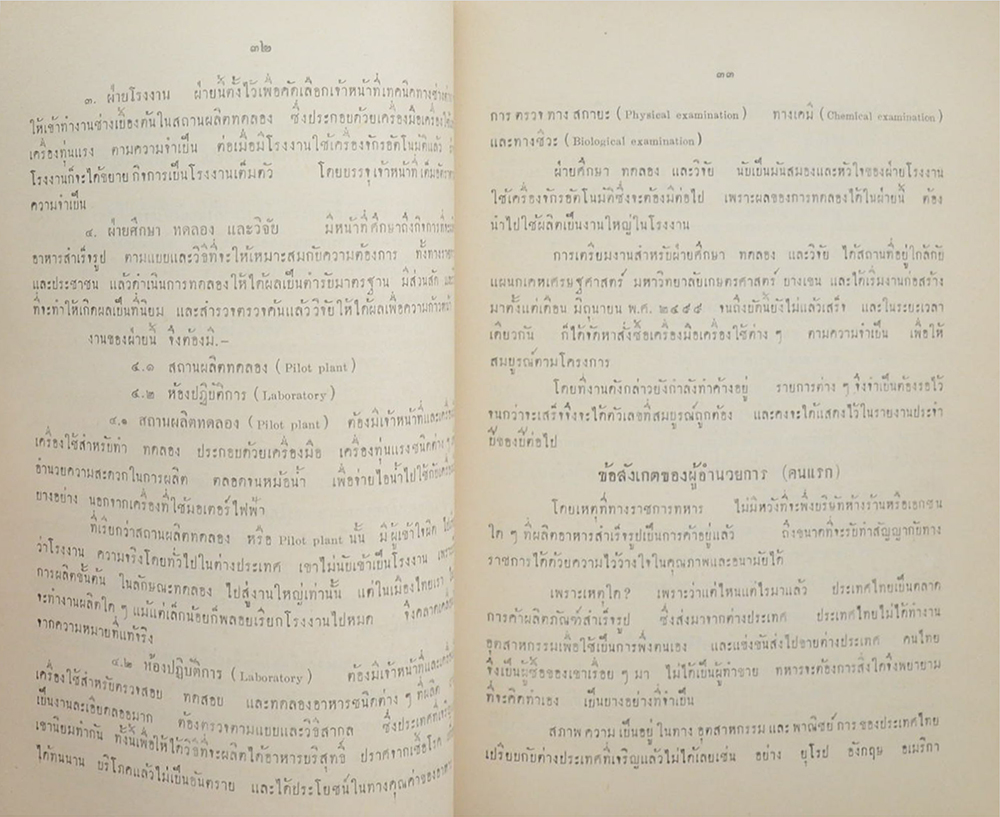 ๓๒
๓. ฝ่ายโรงงาน ฝ่ายนี้ตั้งไว้เพื่อคัดเลือกเจ้าหน้าที่เทคนิคทางช่าง
ให้เข้าทำงานช่างเบื้องต้นในสถานผลิตทดลอง ซึ่งประกอบด้วยเครื่องมือเครื่องใช้
เครื่องทุ่นแรง ตามความจำเป็น ต่อเมื่อมีโรงงานใช้เครื่องจักรอัตโนมัติแล้ว
โรงงานก็จะได้ขยายกิจการเป็นโรงงานเต็มตัว โดยบรรจุเจ้าหน้าที่เต็มอัตรา
ความจำเป็น
๔. ฝ่ายศึกษา ทดลอง และวิจัย มีหน้าที่ศึกษาถึงกิจการที่จะ
อาหารสำเร็จรูป ตามแบบและวิธีที่จะให้เหมาะสมกับความต้องการ ทั้งทาง
และประชาชน แล้วดำเนินการทดลองให้ได้ผลเป็นตำรับมาตรฐาน มีส่วนสัด
ที่จะทำให้เกิดผลเป็นที่นิยม และสำรวจตรวจค้นแล้ววิจัยให้ได้ผลเพื่อความก้าวหน้า
งานของฝ่ายนี้ จึงต้องมี.–
๔.๑ สถานผลิตทดลอง (Pilot plant)
๔.๒ ห้องปฏิบัติการ (Laboratory)
๔.๑ สถานผลิตทดลอง (Pilot plant) ต้องมีเจ้าหน้าที่และ
เครื่องใช้สำหรับทำ ทดลอง ประกอบด้วยเครื่องมือ เครื่องทุ่นแรงชนิดต่าง ๆ
อำนวยความสะดวกในการผลิต ตลอดจนหม้อน้ำ เพื่อจ่ายไอน้ำไปใช้กับ
ยางอย่าง นอกจากเครื่องที่ใช้มอเตอร์ไฟฟ้า
ที่เรียกว่าสถานผลิตทดลอง หรือ Pilot plant นั้น มีผู้เข้าใจผิด
ว่าโรงงาน ความจริงโดยทั่วไปในต่างประเทศ เขาไม่นับเข้าเป็นโรงงาน
การผลิตขั้นต้น ในลักษณะทดลอง ไปสู่งานใหญ่เท่านั้น แต่ในเมืองไทยเรา
จะทำงานผลิตใด ๆ แม้แต่เล็กน้อยก็พลอยเรียกโรงงานไปหมด จึงคลาดเคลื่อน
จากความหมายที่แท้จริง
๔.๒ ห้องปฏิบัติการ (Laboratory) ต้องมีเจ้าหน้าที่และ
เครื่องใช้สำหรับตรวจสอบ ทดสอบ และทดลองอาหารชนิดต่าง ๆ ที่ผลิต
เป็นงานละเอียดลออมาก ต้องตรวจตามแบบและวิธีสากล ซึ่งประเทศที่
เขานิยมทำกัน ทั้งนี้เพื่อให้ได้วิธีที่จะผลิตได้อาหารบริสุทธิ์ ปราศจากเชื้อโรค
ได้ทนนาน บริโภคแล้วไม่เป็นอันตราย และได้ประโยชน์ในทางคุณค่าของอาหาร
๓๓
การตรวจทางสภายะ (Physical examination) ทางเคมี (Chemical examination)
และทางชีวะ (Biological examination)
ฝ่ายศึกษา ทดลอง และวิจัย นับเป็นมันสมองและหัวใจของฝ่ายโรงงาน
ใช้เครื่องจักรอัตโนมัติซึ่งจะต้องมีต่อไป เพราะผลของการทดลองได้ในฝ่ายนี้ ต้อง
นำไปใช้ผลิตเป็นงานใหญ่ในโรงงาน
การเตรียมงานสำหรับฝ่ายศึกษา ทดลอง และวิจัย ได้สถานที่อยู่ใกล้กับ
แผนกเคหเศรษฐศาสตร์ มหาวิทยาลัยเกษตรศาสตร์ บางเขน และได้เริ่มงานก่อสร้าง
มาตั้งแต่เดือน มิถุนายน พ.ศ. ๒๔๙๙ จนถึงบัดนี้ยังไม่แล้วเสร็จ และในระยะเวลา
เดียวกัน ก็ได้จัดหาสั่งซื้อเครื่องมือเครื่องใช้ต่าง ๆ ตามความจำเป็น เพื่อให้
สมบูรณ์ตามโครงการ
โดยที่งานดังกล่าวยังกำลังทำค้างอยู่ รายการต่าง ๆ จึงจำเป็นต้องรอไว้
จนกว่าจะเสร็จจึงจะได้ตัวเลขที่สมบูรณ์ถูกต้อง และคงจะได้แสดงไว้ในรายงานประจำ
ปีของปีต่อไป
ข้อสังเกตของผู้อำนวยการ (คนแรก)
โดยเหตุที่ทางราชการทหาร ไม่มีหวังที่จะพึ่งบริษัทห้างร้านหรือเอกชน
ใด ๆ ที่ผลิตอาหารสำเร็จรูปเป็นการค้าอยู่แล้ว ถึงขนาดที่จะรับทำสัญญากับทาง
ราชการได้ด้วยความไว้วางใจในคุณภาพและอนามัยได้
เพราะเหตุใด? เพราะว่าแต่ไหนแต่ไรมาแล้ว ประเทศไทยเป็นตลาด
การค้าผลิตภัณฑ์สำเร็จรูป ซึ่งส่งมาจากต่างประเทศ ประเทศไทยไม่ได้ทำงาน
อุตสาหกรรมเพื่อใช้เป็นการพึ่งตนเอง และแข่งขันส่งไปขายต่างประเทศ คนไทย
จึงเป็นผู้ซื้อของเขาเรื่อย ๆ มา ไม่ได้เป็นผู้ทำขาย ทหารจะต้องการสิ่งใดจึงพยายาม
ที่จะคิดทำเอง เป็นบางอย่างที่จำเป็น
สภาพความเป็นอยู่ในทางอุตสาหกรรมและพาณิชย์การของประเทศไทย
เปรียบกับต่างประเทศที่เจริญแล้วไม่ได้เลยเช่น อย่าง ยุโรป อังกฤษ อเมริกา